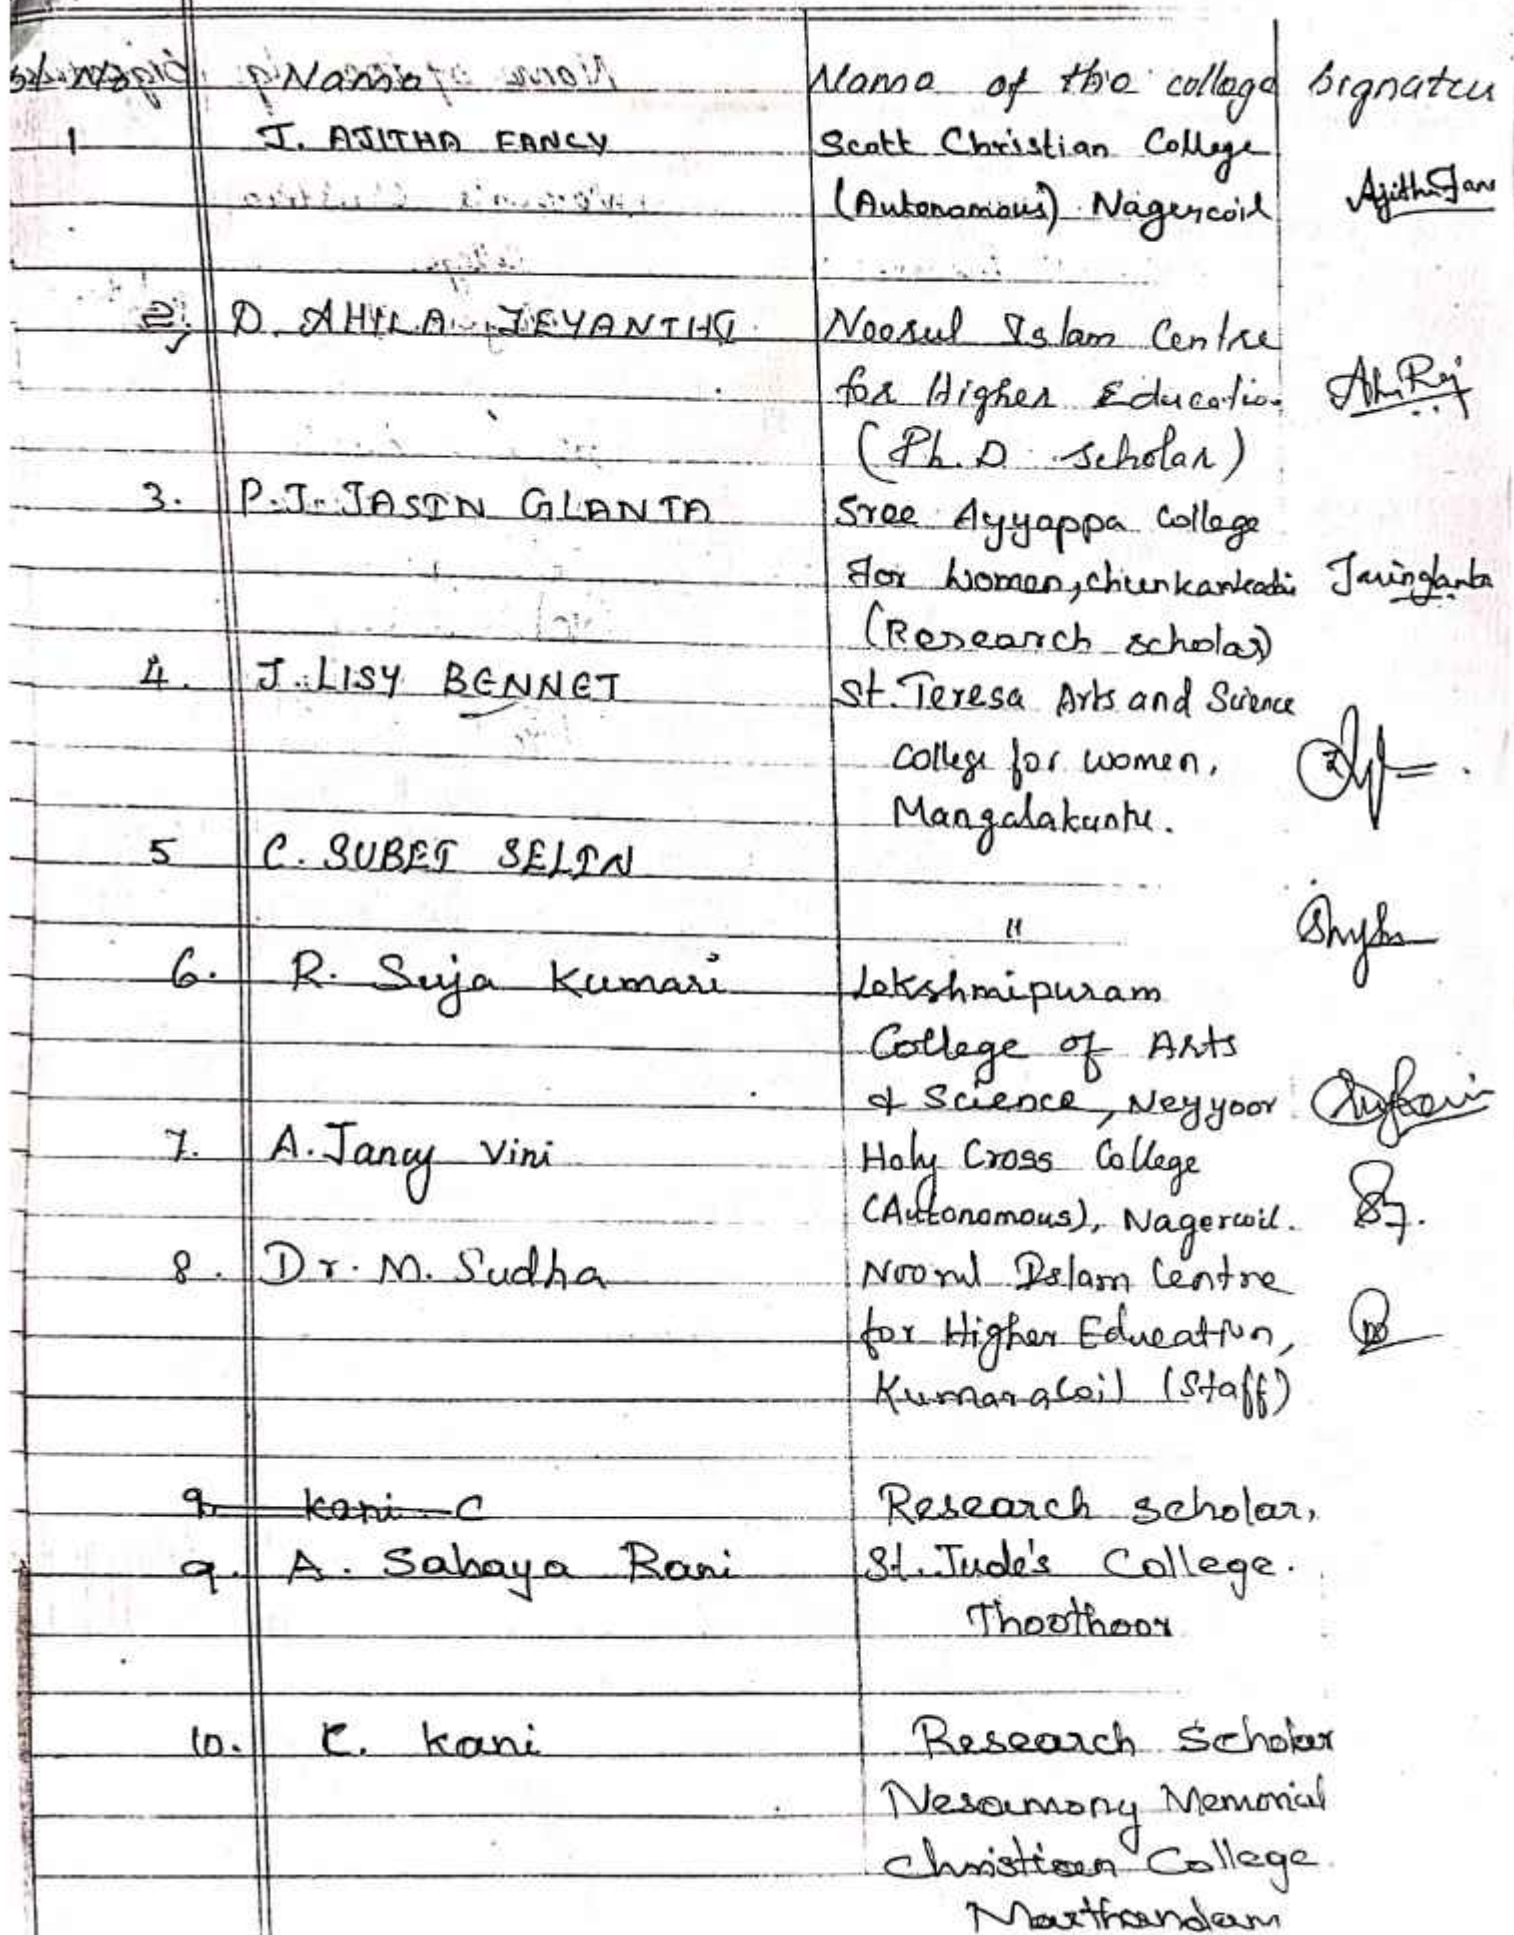 Name Name of the college Signatu
1 J. AJITHA FANCY Scott Christian College
(Autonomous) Nagercoil
2, D. AHILA JEYANTHI Noorul Islam Centre
for Higher Educatio
(Ph.D scholar)
3. P.J. JASIN GLANTA Sree Ayyappa College
For Women, chunkankadai
(Research scholar)
4. J. LISY BENNET St. Teresa Arts and Science
College for women,
Mangalakuntu.
5 C. SUBET SELIN
"
6. R. Suja Kumari Lekshmipuram
College of Arts
& Science, Neyyoor
7. A. Jancy Vini Holy Cross College
(Autonomous), Nagercoil.
8. Dr. M. Sudha Noorul Islam Centre
for Higher Education,
Kumaracoil (Staff)
9. Kani C Research scholar,
9. A. Sahaya Rani St. Jude's College.
Thoothoor
10. C. Kani Research Scholar
Nesamony Memorial
Christian College
Marthandam